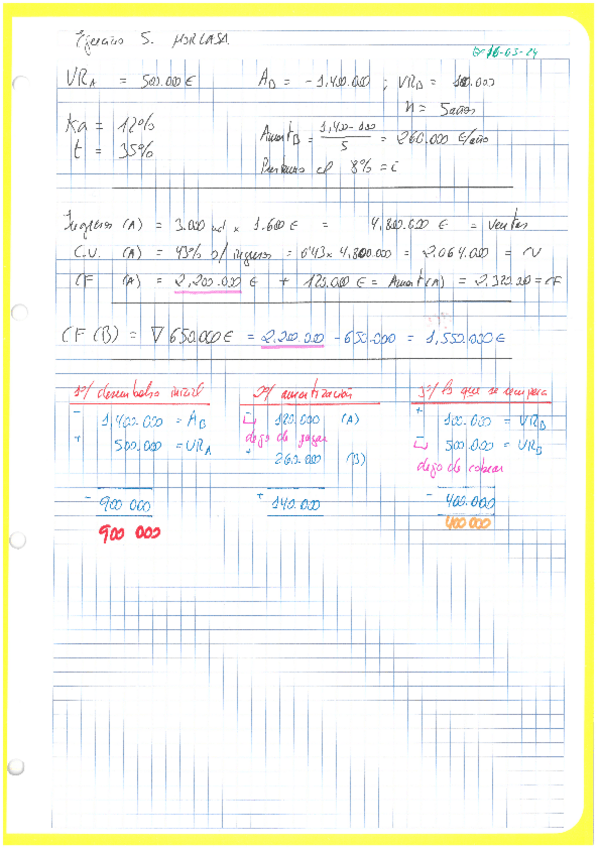 Ejercicio 5. MORCASA.
16-05-24
VR_A = 500.000 € A_B = -1,400.000 ; VR_B = 100.000
n = 5 años
Ka = 12%
t = 35%
Amort B = 1,400-100 / 5 = 260.000 €/año
8% = i
Ingresos (A) = 3.000 ud x 1.600 € = 4,800.000 € = Ventas
C.V. (A) = 43% s/ ingresos = 0'43 x 4,800.000 = 2.064.000 = CV
CF (A) = 2,200.000 € + 120.000 € = Amort (A) = 2,320.000 = CF
CF (B) = ∇ 650.000 € = 2,200.000 - 650.000 = 1,550.000 €
1º/ desembolso inicial 2º/ amortización 3º/ lo que se recupera
- 1,400.000 = A_B
+ 500.000 = VR_A
- 900 000
900 000
- 120.000 (A)
dejo de
+ 260.000 (B)
+ 140.000
+ 100.000 = VR_B
- 500.000 = VR_B
dejo de cobrar
- 400.000
400 000